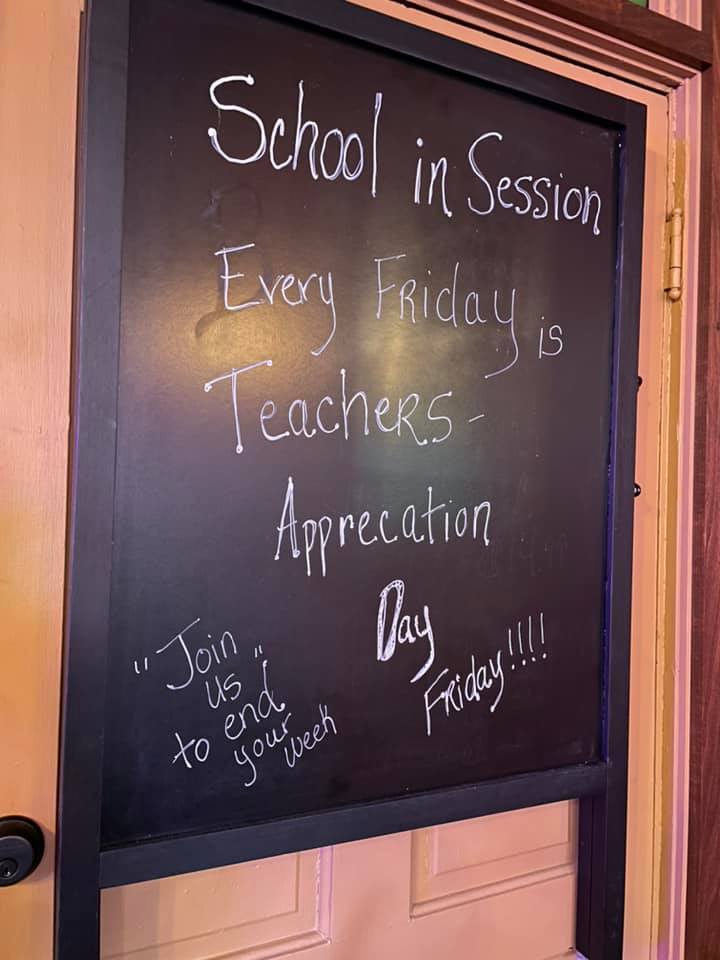 School in Session
Every Friday is
Teachers-
Apprecation
Day
Friday!!!!
"Join"
us
to end
your
week